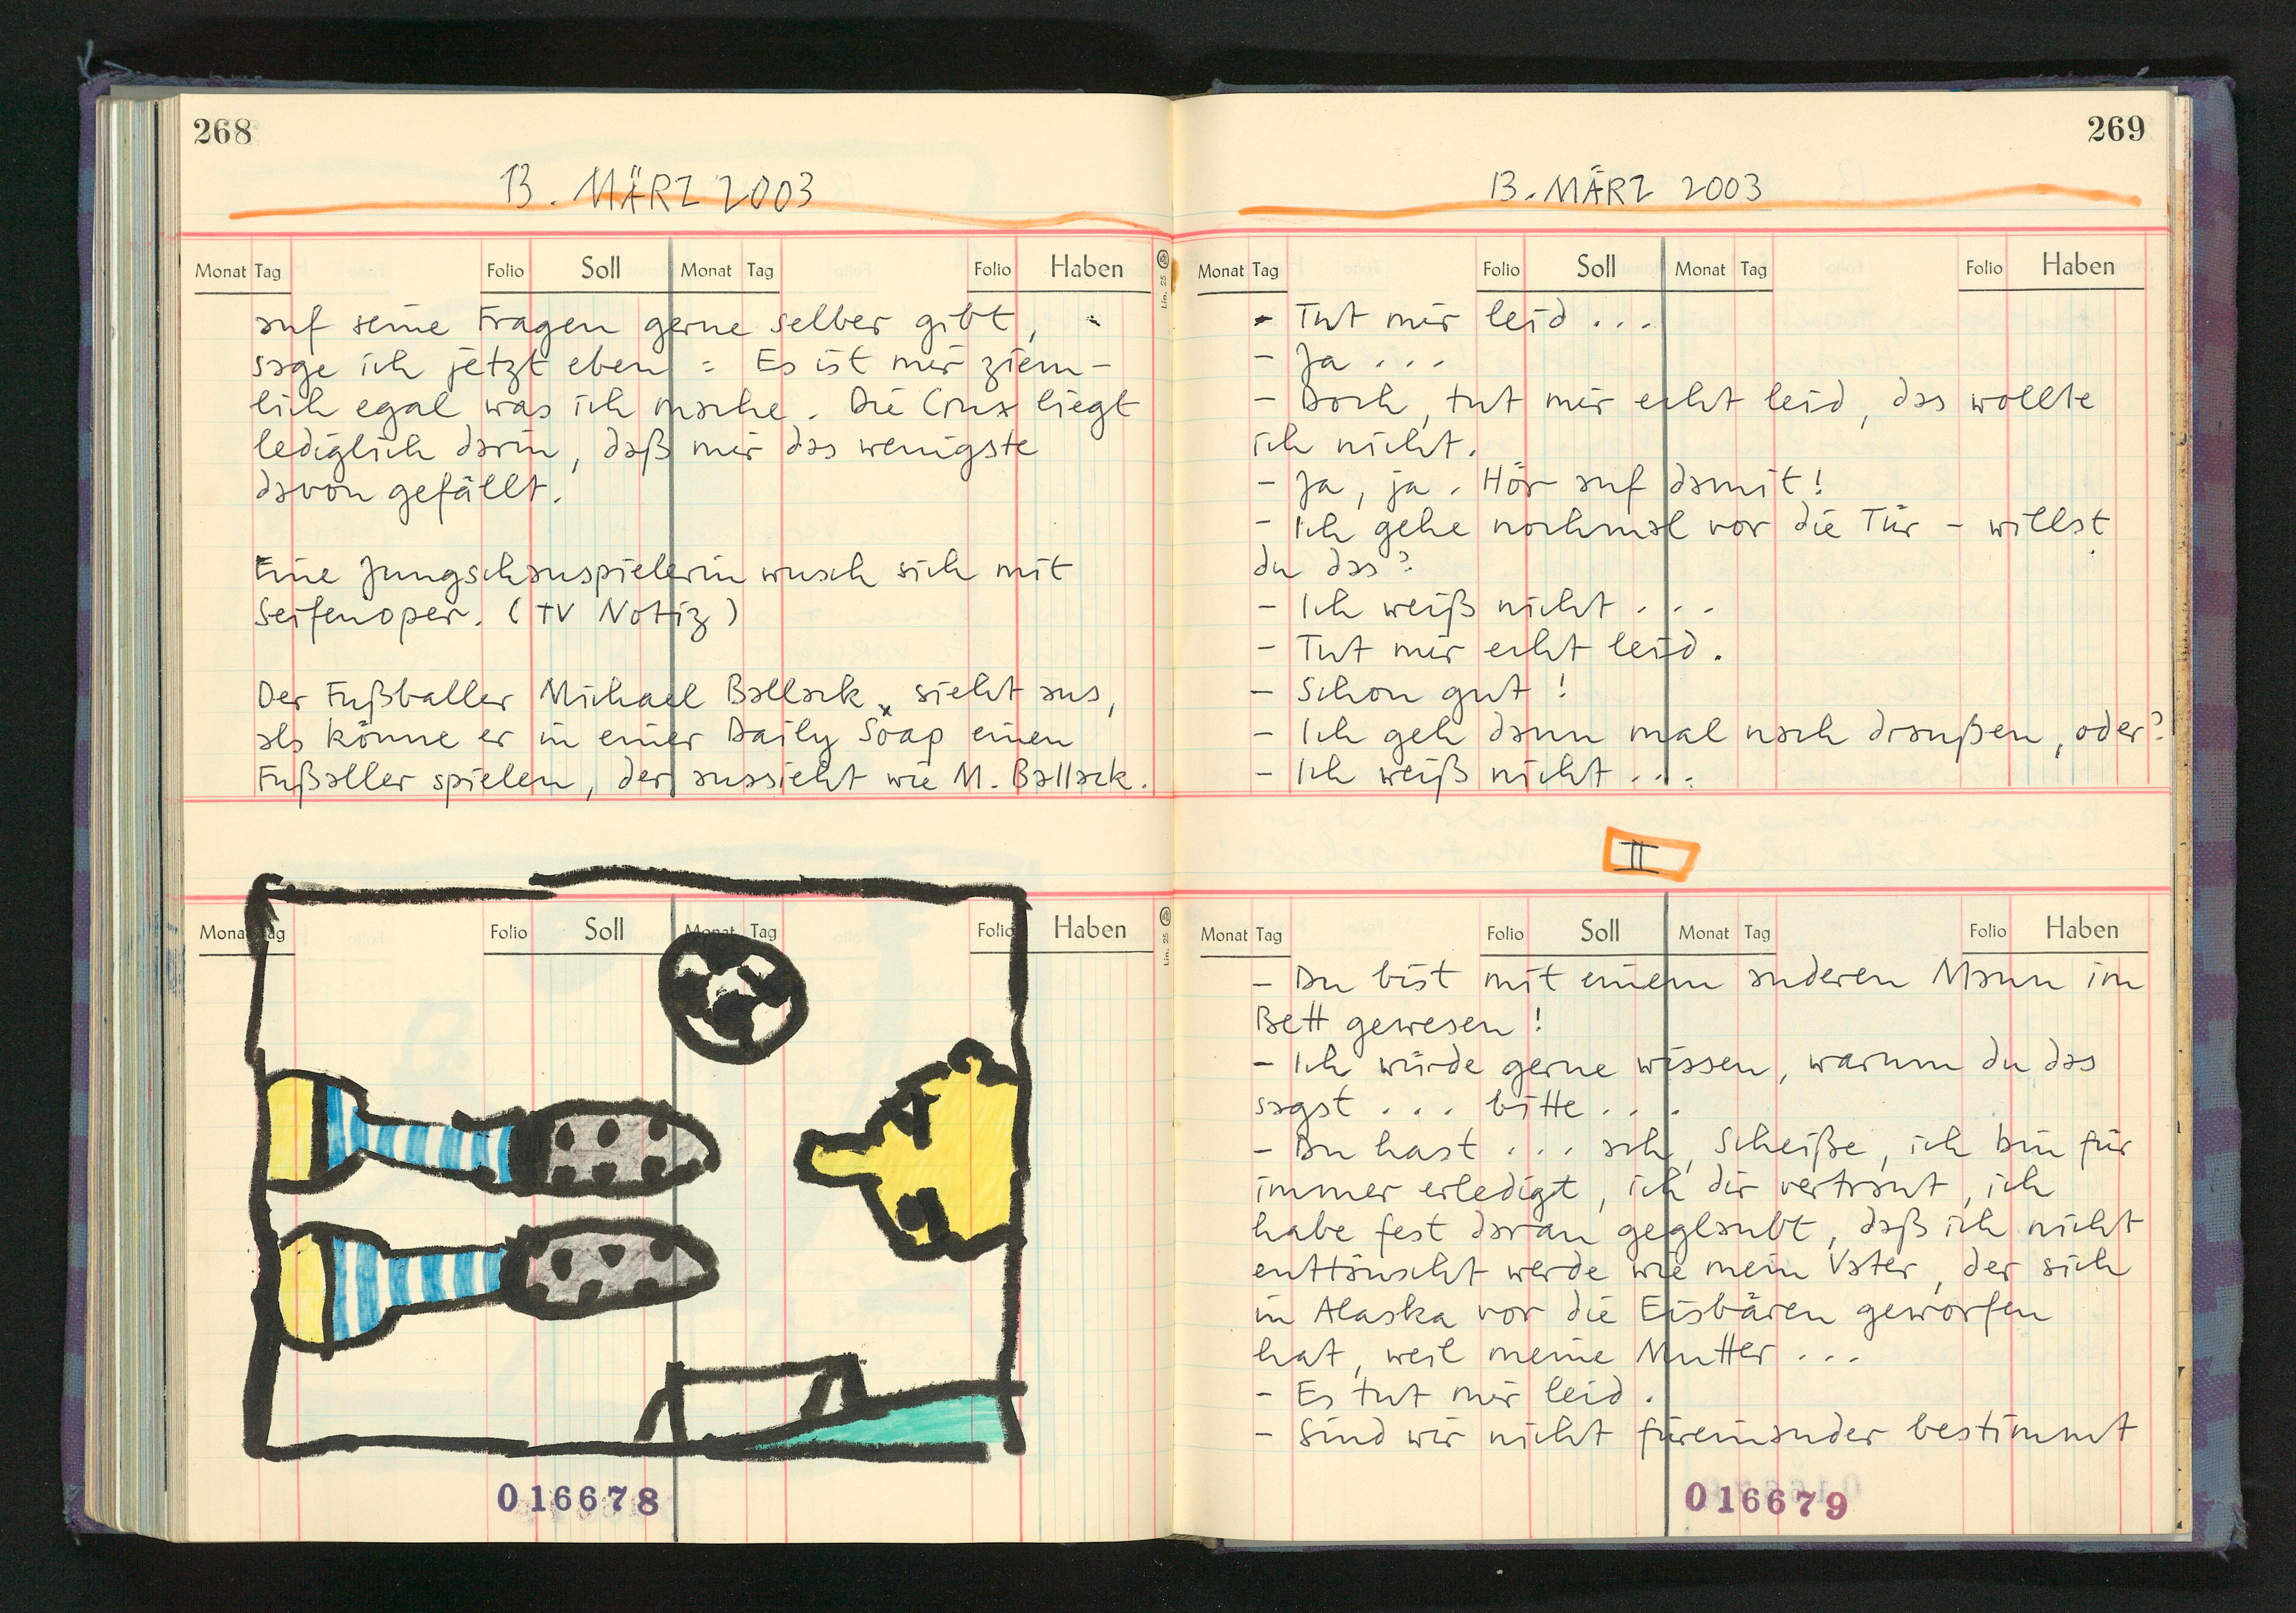 268
13. MÄRZ 2003
Monat Tag Folio Soll Monat Tag Folio Haben
auf seine Fragen gerne selber gibt,
sage ich jetzt eben: Es ist mir ziem-
lich egal was ich mache. Die Crux liegt
lediglich darin, daß mir das wenigste
davon gefällt.
Eine Jungschauspielerin wusch sich mit
Seifenoper. (TV Notiz)
Der Fußballer Michael Ballack, sieht aus,
als könne er in einer Daily Soap einen
Fußaller spielen, der aussieht wie M. Ballack.
Monat Tag Folio Soll Monat Tag Folio Haben
016678
269
13. MÄRZ 2003
Lin. 25
Monat Tag Folio Soll Monat Tag Folio Haben
- Tut mir leid...
- Ja...
- Doch, tut mir echt leid, das wollte
ich nicht.
- Ja, ja. Hör auf damit!
- Ich gehe nochmal vor die Tür - willst
du das?
- Ich weiß nicht...
- Tut mir echt leid.
- Schon gut!
- Ich geh dann mal nach draußen, oder?
- Ich weiß nicht...
II
Lin. 25
Monat Tag Folio Soll Monat Tag Folio Haben
- Du bist mit einem anderen Mann im
Bett gewesen!
- Ich würde gerne wissen, warum du das
sagst... bitte...
- Du hast... ach, Scheiße, ich bin für
immer erledigt, ich dir vertraut, ich
habe fest daran geglaubt, daß ich nicht
enttäuscht werde wie mein Vater, der sich
in Alaska vor die Eisbären geworfen
hat, weil meine Mutter...
- Es tut mir leid.
- Sind wir nicht füreinander bestimmt
016679